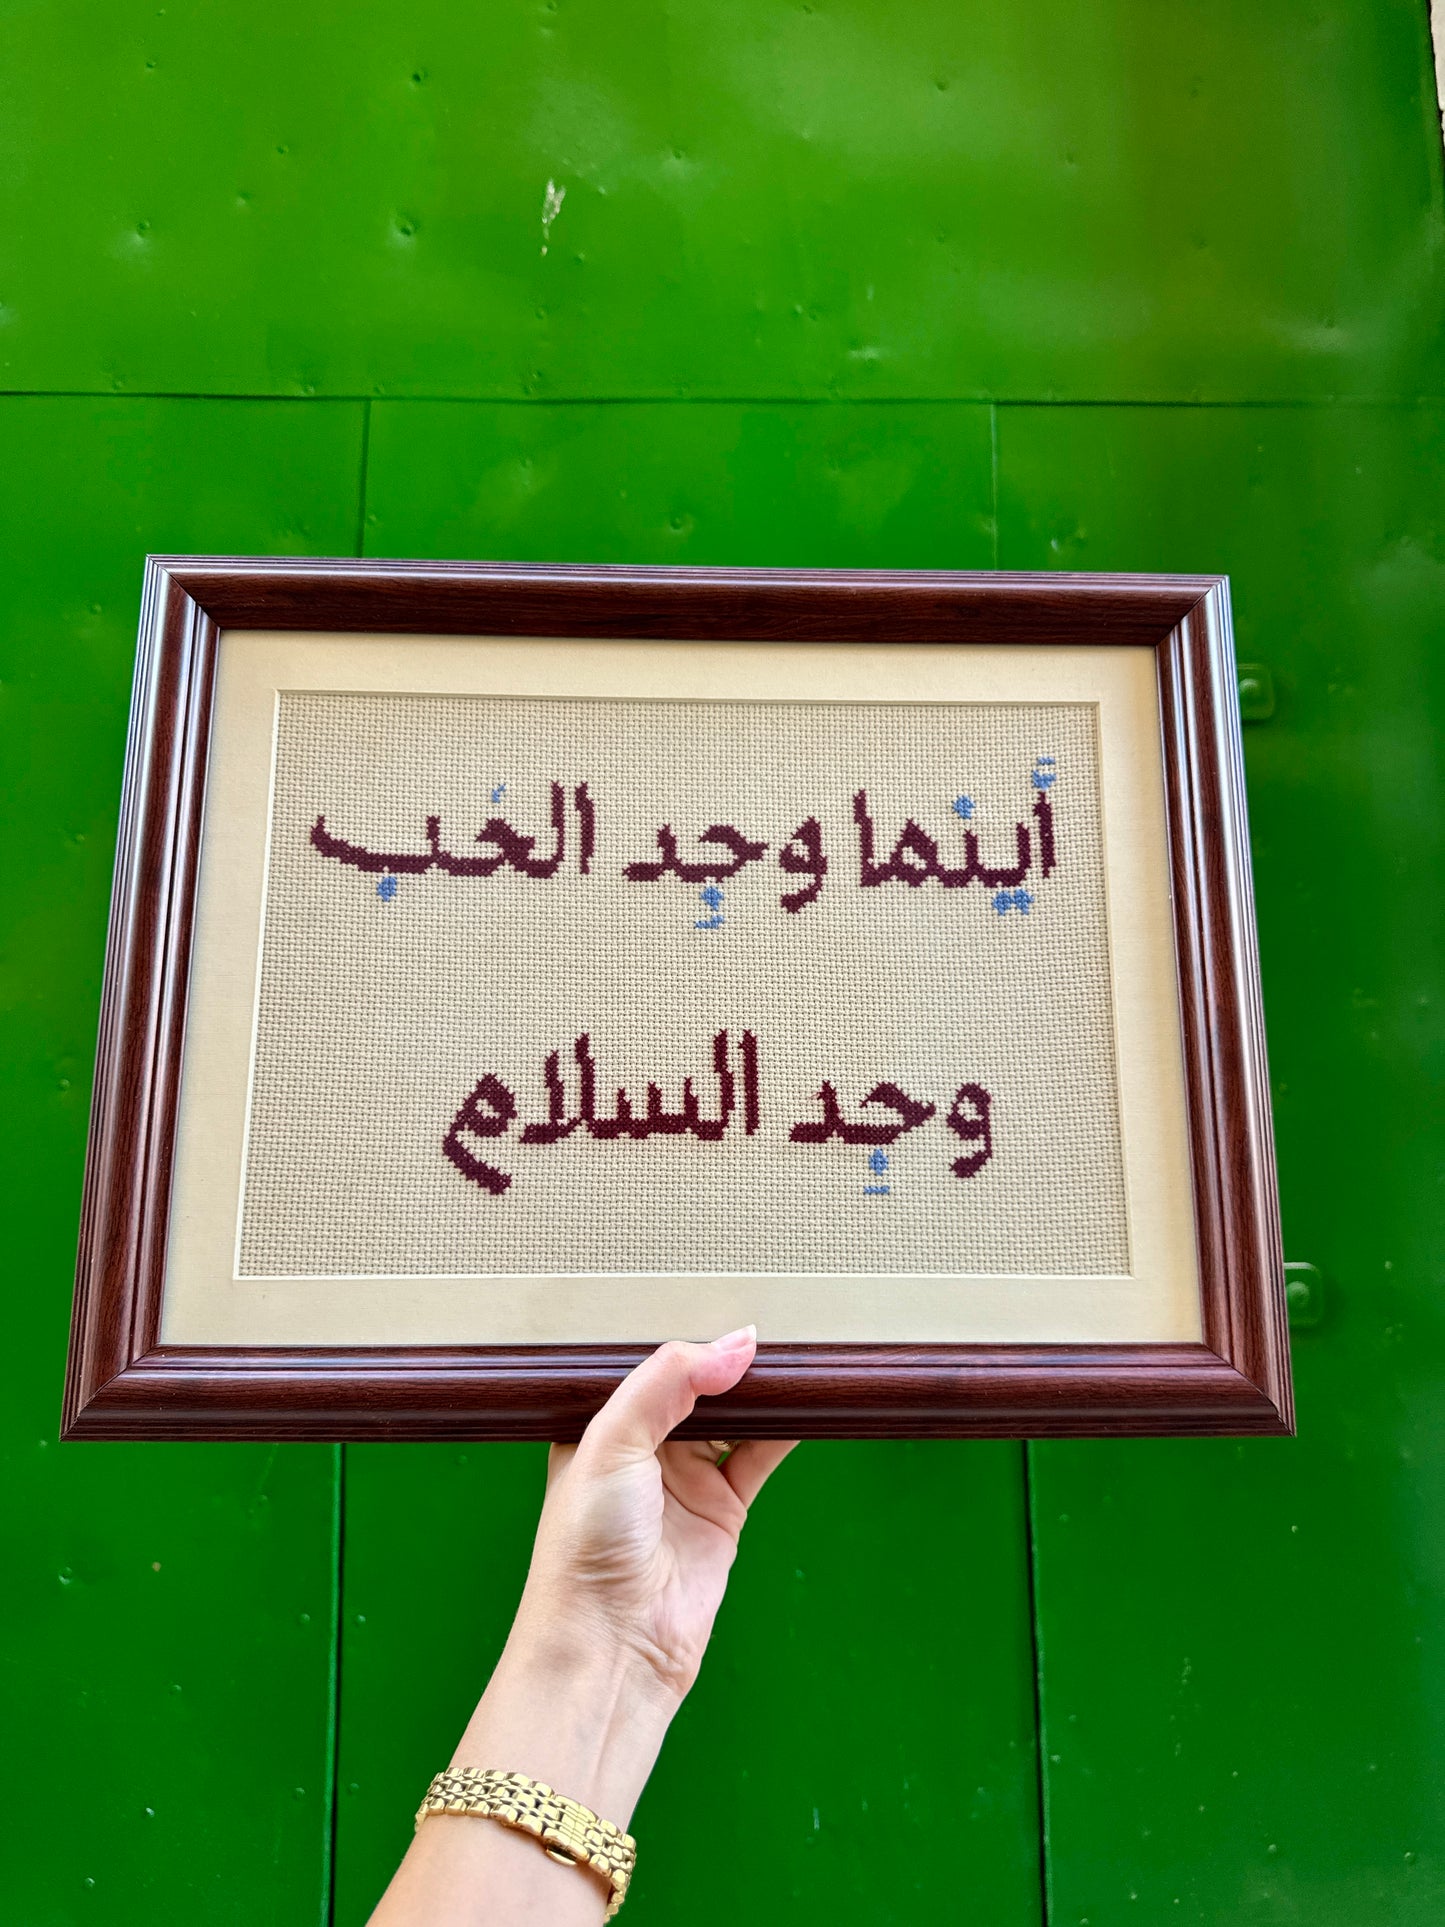 أينما وجِد الحُب
وجِد السلام